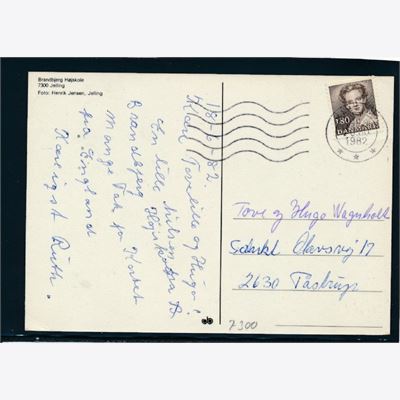 Brandbjerg Højskole
7300 Jelling
Foto: Henrik Jensen, Jelling
Kære Tove lille og Hugo!
En lille hilsen fra
Brandbjerg Højskole
Mange Tak for Kortet
fra England
Kærligst Ruth.
180
DANMARK
1982
Tove og Hugo Wagnholt
Sankt Olavsvej 17
2630 Tåstrup
7300